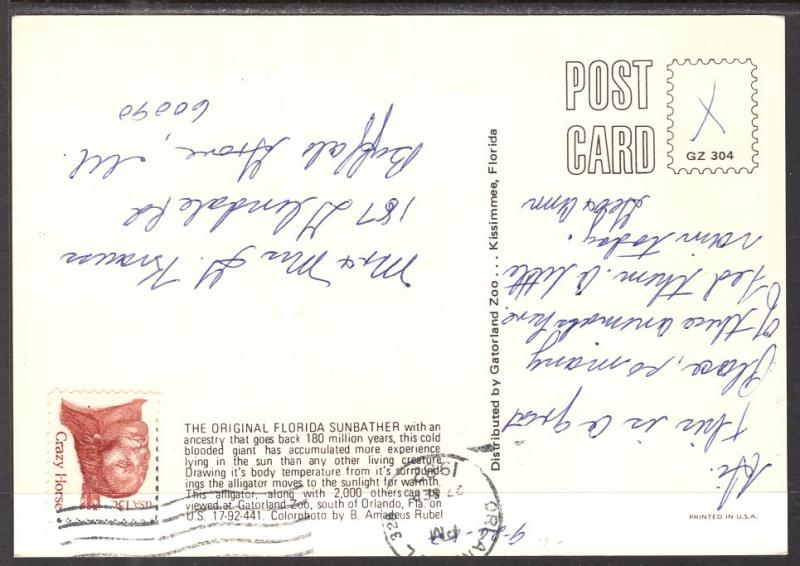 POST
CARD
GZ 304
X
THE ORIGINAL FLORIDA SUNBATHER with an
ancestry that goes back 180 million years, this cold
blooded giant has accumulated more experience
lying in the sun than any other living creature.
Drawing it's body temperature from it's surround-
ings the alligator moves to the sunlight for warmth.
This alligator, along with 2,000 others can be
viewed at Gatorland Zoo, south of Orlando, Fla. on
U.S. 17-92-441. Colorphoto by B. Amadeus Rubel
Distributed by Gatorland Zoo . . . Kissimmee, Florida
PRINTED IN U.S.A.
9-26-
Hi.
This is a great
place, so many
of these animals here.
I fed them. A little
rain today.
Mr & Mrs H. Krause
187 Glendale Rd
Buffalo Grove, Ill.
60090
Crazy Horse
USA 13c
ORLAN
PM
27 SEP
328